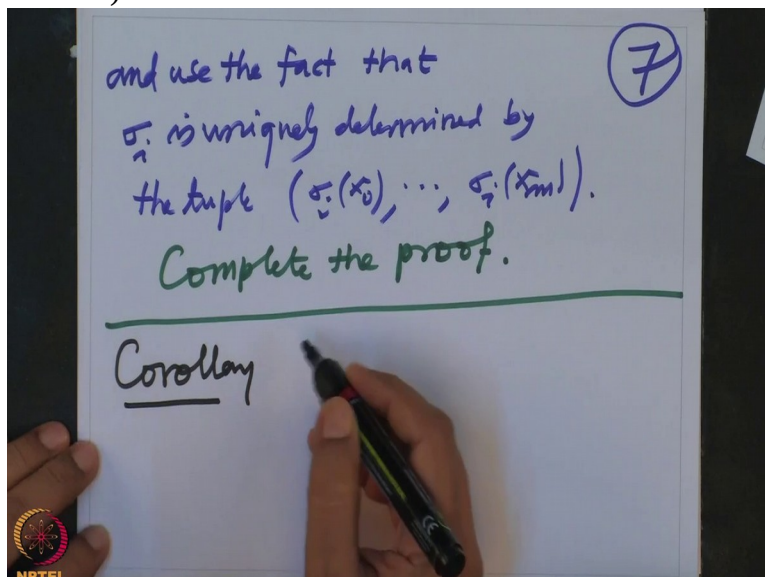 and use the fact that
7
σ_i is uniquely determined by
the tuple (σ_i(x_0), ..., σ_i(x_m)).
Complete the proof.
Corollay
NPTEL